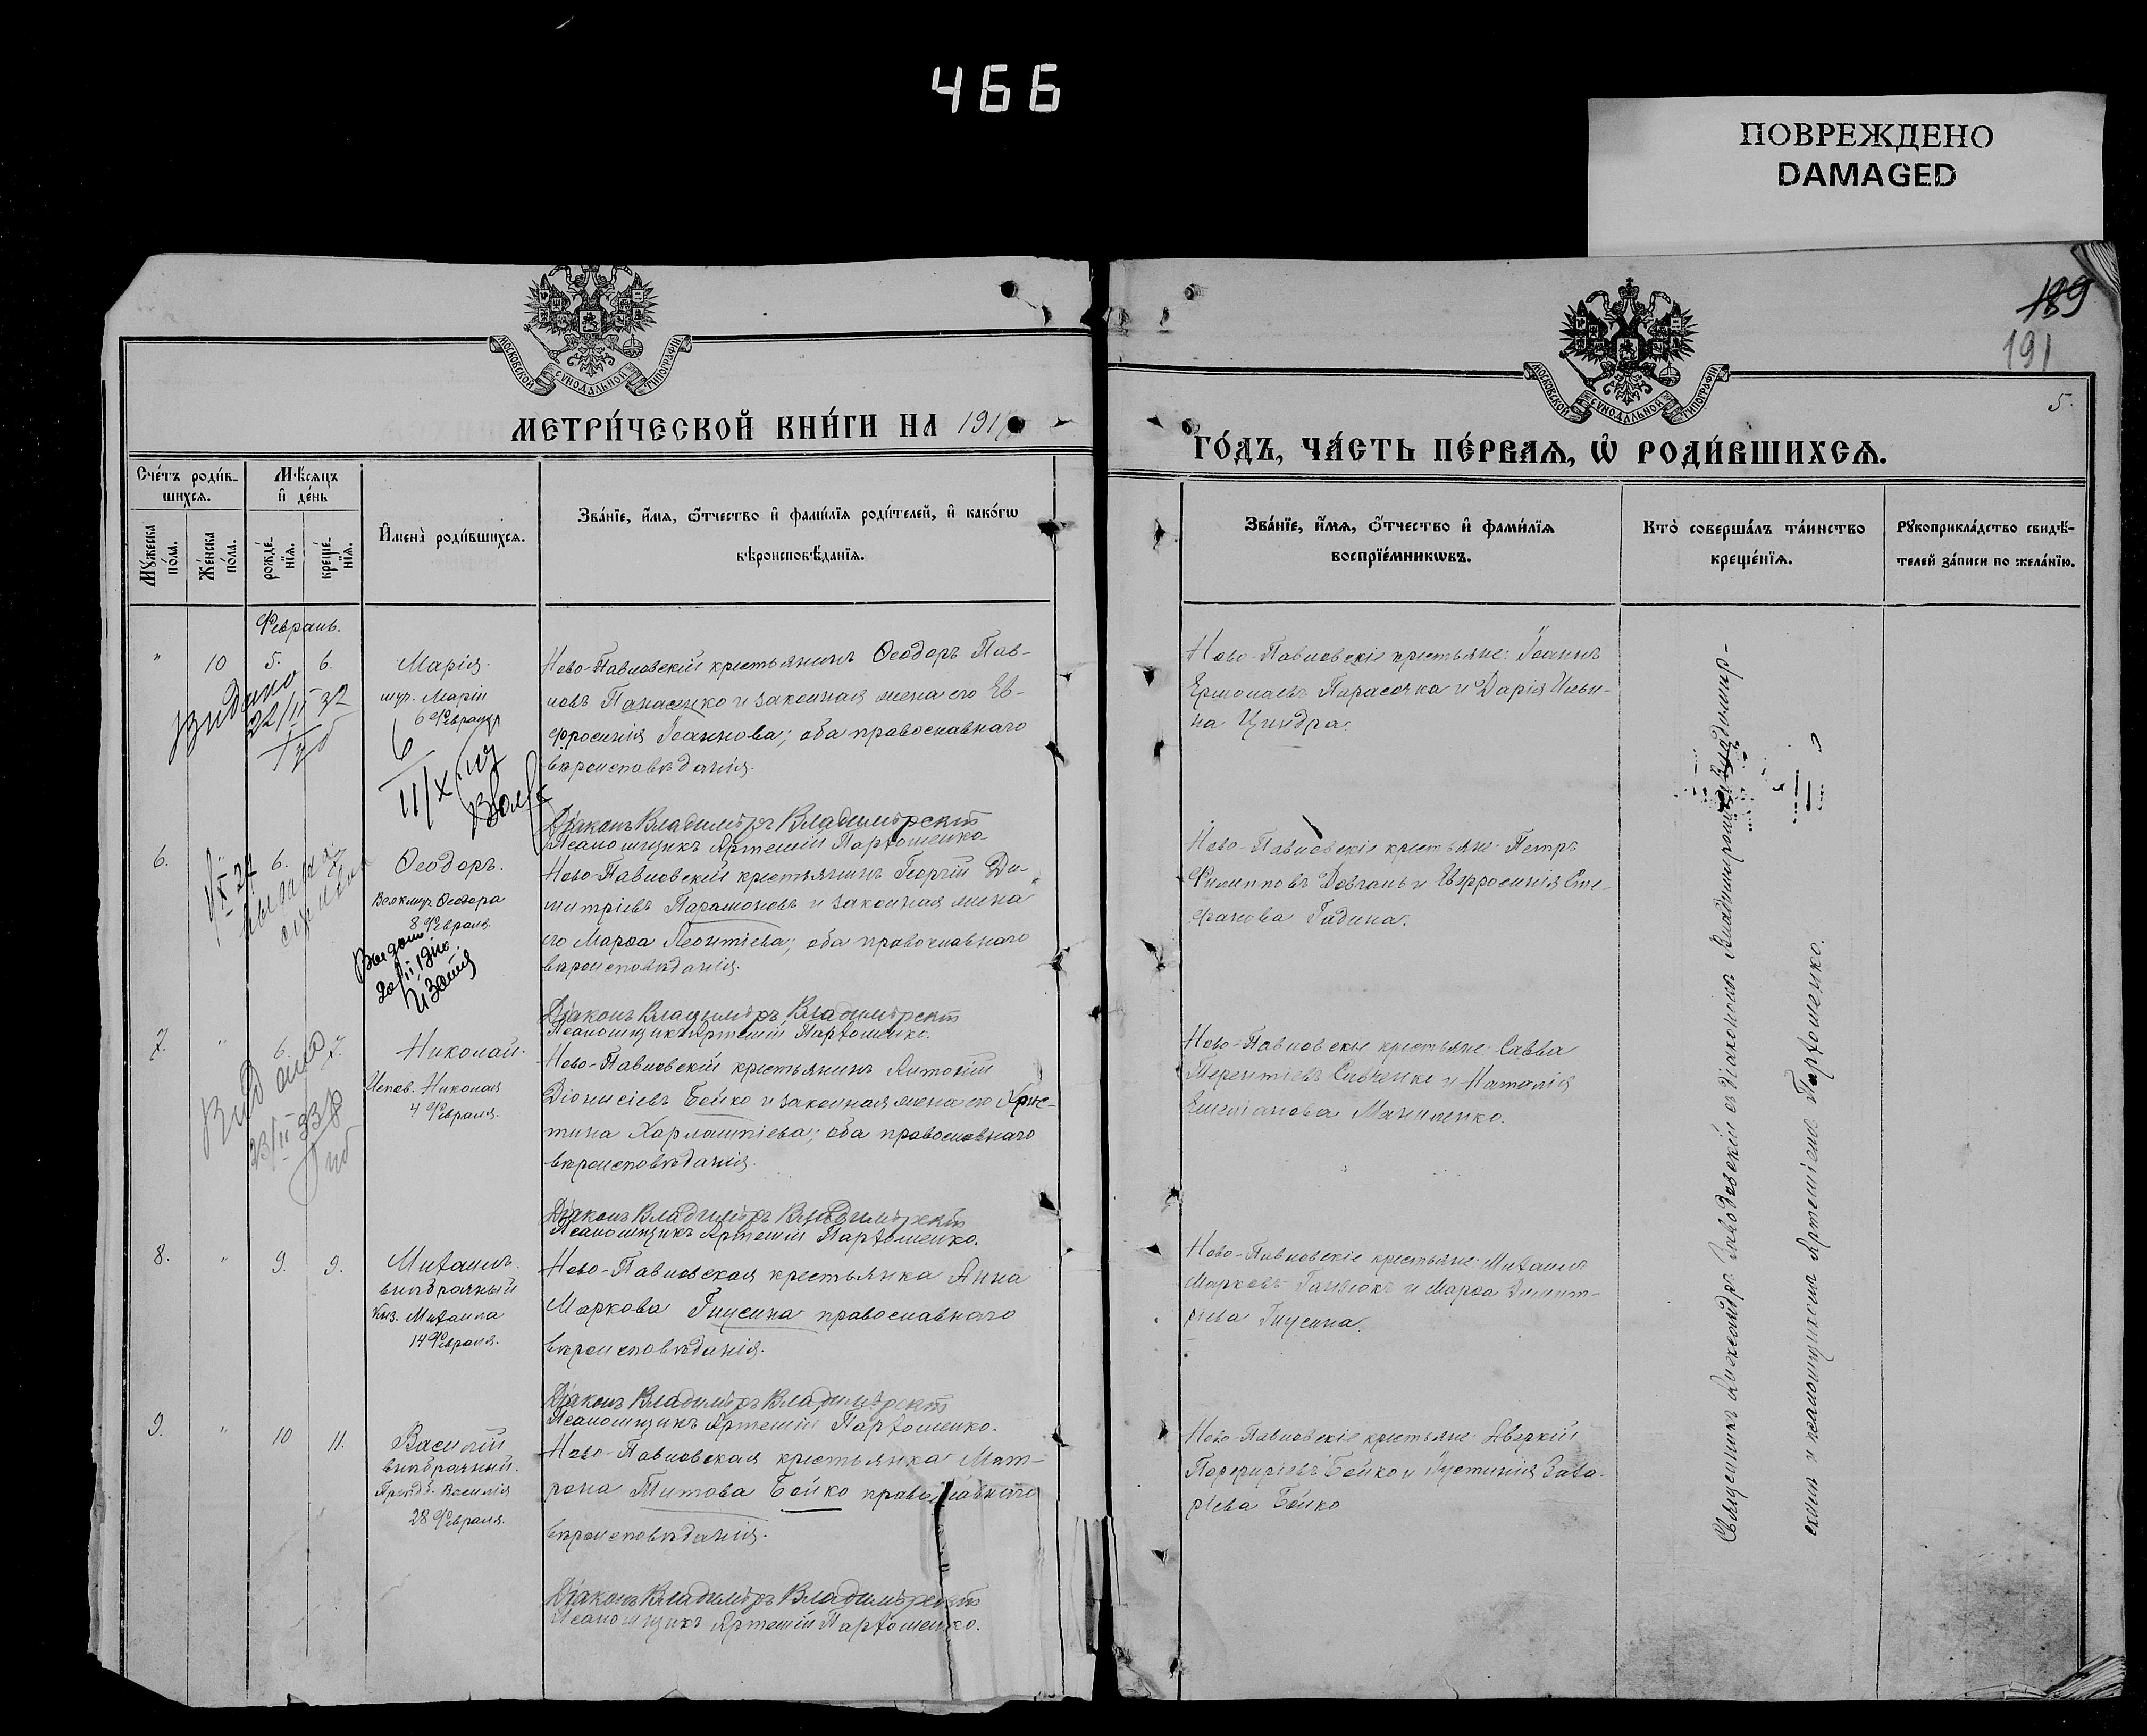 466
ПОВРЕЖДЕНО
DAMAGED
189
191
5.
МОСКОВСКОЙ СѴНОДАЛЬНОЙ ТИПОГРАФІИ
МОСКОВСКОЙ СѴНОДАЛЬНОЙ ТИПОГРАФІИ
МЕТРИ́ЧЕСКОЙ КНИ́ГИ НА 191
ГО́ДЪ, ЧА́СТЬ ПЕ́РВАѦ, Ѽ РОДИ́ВШИХСѦ.
Сче́тъ роди́в-
шихсѧ.
Мѣ́сѧцъ
и҆ де́нь
Мꙋ́жеска
по́ла.
Же́нска
по́ла.
рожде́-
нїѧ.
креще́-
нїѧ.
И҆мена̀ роди́вшихсѧ.
Зва́нїе, и҆́мѧ, ѻ҆́тчество и҆ фами́лїѧ роди́телей, и҆ како́гѡ
вѣроисповѣ́данїѧ.
Зва́нїе, и҆́мѧ, ѻ҆́тчество и҆ фами́лїѧ
воспрїе́мникѡвъ.
Кто̀ соверша́лъ та́инство
креще́нїѧ.
Рꙋкоприкла́дство свидѣ́-
телей за́писи по жела́нїю.
Февраль.
" 10 5. 6.
Марія.
муч. Маріи
6 Февраля
Видано
22/II 32
Ново-Павловскій крестьянинъ Ѳеодоръ Пав-
ловъ Панасенко и законная жена его Ев-
фросинія Іоаннова; оба православнаго
вѣроисповѣданія.
Діаконъ Владиміръ Владимірскій
Псаломщикъ Артемій Пархоменко.
Ново-Павловскіе крестьяне: Іоаннъ
Ермолаевъ Парасочка и Дарія Ильи-
на Циндра.
6. 6. 7.
Ѳеодоръ.
Великмуч Ѳеодора
8 Февраля.
Ново-Павловскій крестьянинъ Георгій Ди-
митріевъ Парамоновъ и законная жена
его Марѳа Леонтіева; оба православнаго
вѣроисповѣданія.
Діаконъ Владиміръ Владимірскій
Псаломщикъ Артемій Пархоменко.
Ново-Павловскіе крестьяне: Петръ
Филипповъ Довгань и Евфросинія Сте-
фанова Гадина.
7. " 6. 7.
Николай.
Испов. Николая
4 Февраля.
Видано
23/II 33 р
Ново-Павловскій крестьянинъ Антоній
Діонисіевъ Бойко и законная жена его Хрис-
тина Харлампіева; оба православнаго
вѣроисповѣданія.
Діаконъ Владиміръ Владимірскій
Псаломщикъ Артемій Пархоменко.
Ново-Павловскіе крестьяне: Савва
Терентіевъ Савченко и Наталія
Емеліанова Маниленко.
8. " 9. 9.
Михаилъ.
внѣбрачный
Кнз. Михаила
14 Февраля.
Ново-Павловская крестьянка Анна
Маркова Гнусина православнаго
вѣроисповѣданія.
Діаконъ Владиміръ Владимірскій
Псаломщикъ Артемій Пархоменко.
Ново-Павловскіе крестьяне: Михаилъ
Марковъ и Марѳа Димит-
ріева Гнусина.
9. " 10 11.
Василій
внѣбрачный.
Василія
28 Февраля.
Ново-Павловская крестьянка Мат-
рона Титова Бойко православнаго
вѣроисповѣданія.
Діаконъ Владиміръ Владимірскій
Псаломщикъ Артемій Пархоменко.
Ново-Павловскіе крестьяне: Аверкій
Порфиріевъ Бойко и Іустинія Заха-
ріева Бойко
Священникъ Александръ съ діакономъ Владиміромъ Владимір-
скимъ и псаломщикомъ Артеміемъ Пархоменко.